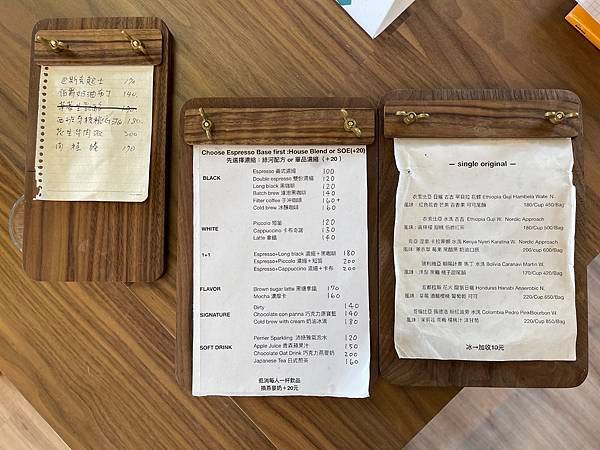 巴斯克起士 170
伯爵奶油布丁 140
170
180
花生牛肉 300
肉桂捲 170
Choose Espresso Base first :House Blend or SOE(+20)
先選擇濃縮：綠河配方 or 單品濃縮（+20）
BLACK
Espresso 義式濃縮 100
Double espresso 雙份濃縮 120
Long black 黑咖啡 120
Batch brew 濾泡黑咖啡 140
Filter coffee 手沖咖啡 160+
Cold brew 冰釀咖啡 160
WHITE
Piccolo 短笛 120
Cappuccino 卡布奇諾 130
Latte 拿鐵 140
1+1
Espresso+Long black 濃縮＋黑咖啡 180
Espresso+Piccolo 濃縮＋短笛 200
Espresso+Cappuccino 濃縮＋卡布 200
FLAVOR
Brown sugar latte 黑糖拿鐵 170
Mocha 濃摩卡 160
SIGNATURE
Dirty 140
Chocolate con panna 巧克力康寶藍 140
Cold brew with cream 奶油冰滴 180
SOFT DRINK
Perrier Sparkling 沛綠雅氣泡水 120
Apple Juice 青森蘋果汁 150
Chocolate Oat Drink 巧克力燕麥奶 200
Japanese Tea 日式煎茶 160
低消每人一杯飲品
換燕麥奶＋20元
— single original —
衣索比亞 日曬 古吉 罕貝拉 花魁 Ethiopia Guji Hambela Wate N.
180/Cup 450/Bag
衣索比亞 水洗 古吉 Ethiopia Guji W. Nordic Approach
180/Cup 500/Bag
肯亞 涅里 卡拉蒂娜 水洗 Kenya Nyeri Karatina W. Nordic Approach
200/cup 600/Bag
玻利維亞 卡拉納維 馬丁 水洗 Bolivia Caranavi Martin W.
220/Cup 650/Bag
宏都拉斯 花火 厭氧日曬 Honduras Hanabi Anaerobic N.
220/Cup 650/Bag
哥倫比亞 佩德洛 粉紅波旁 水洗 Colombia Pedro PinkBourbon W.
220/Cup 850/Bag
冰→加收10元